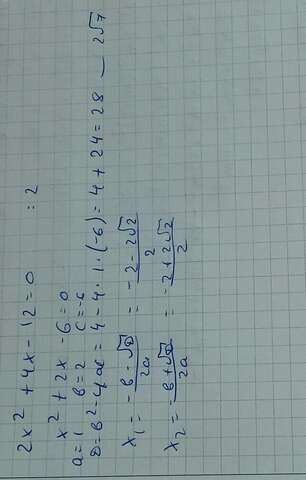 2x² + 4x - 12 = 0 :2
x² + 2x - 6 = 0
a = 1 в = 2 c = -6
D = в² - 4ac = 4 - 4 · 1 · (-6) = 4 + 24 = 28 — 2√7
x₁ = (-в - √D)/2a = (-2 - 2√2)/2
x₂ = (-в + √D)/2a = (-2 + 2√2)/2